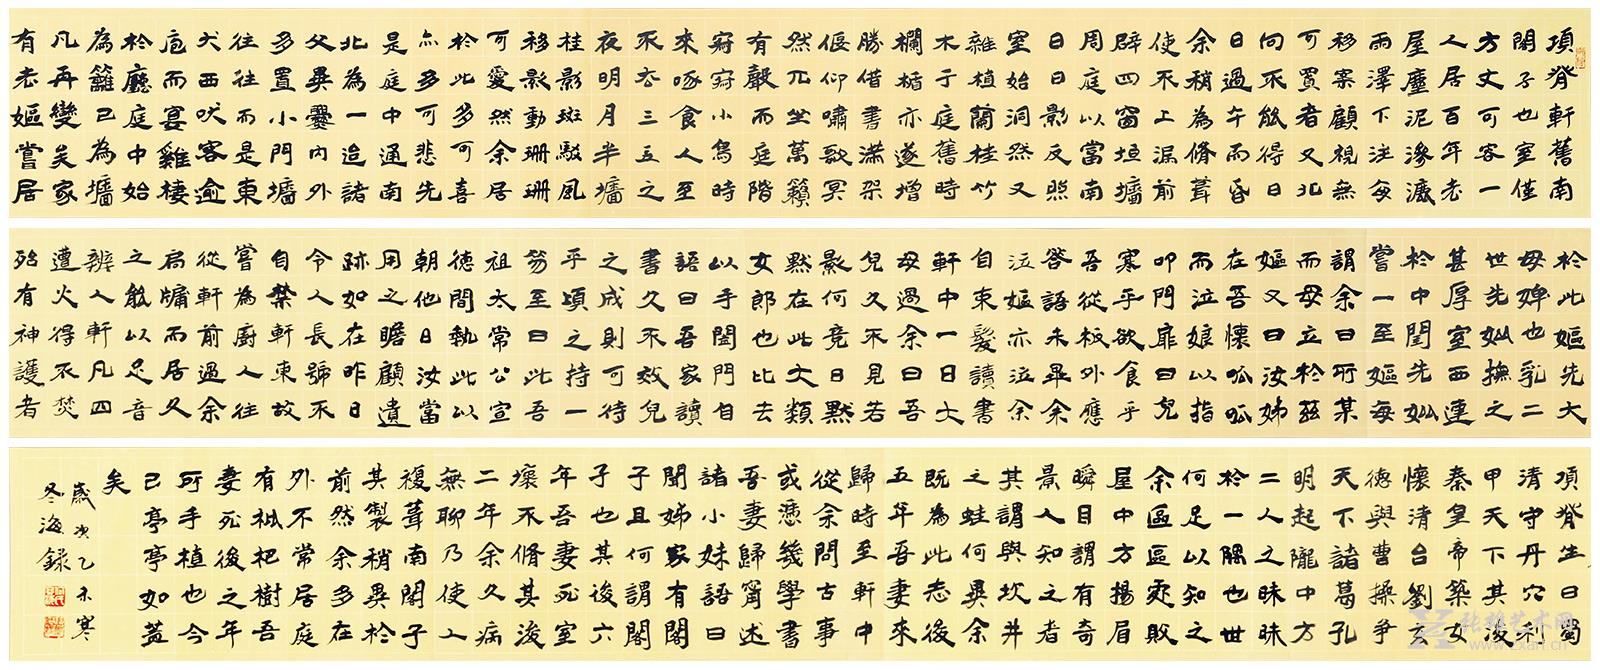 項脊軒舊南
閤子也室僅
方丈可容一
人居百年老
屋塵泥滲漉
雨澤下注每
移案顧視無
可置者又北
向不能得日
日過午而昏
余稍為脩葺
使不上漏前
辟四窗垣墻
周庭以當南
日日影反照
室始洞然又
雜植蘭桂竹
木于庭舊時
欄楯亦遂增
勝借書滿架
偃仰嘯歌冥
然兀坐萬籟
有聲而庭階
寂寂小鳥時
來啄食人至
不去三五之
夜明月半墻
桂影斑駁風
移影動珊珊
可愛然余居
於此多可喜
亦多可悲先
是庭中通南
北為一迨諸
父異爨內外
多置小門墻
往往而是東
犬西吠客逾
庖而宴雞棲
於廳庭中始
為籬已為墻
凡再變矣家
有老嫗嘗居
於此嫗先大
母婢也乳二
世先妣撫之
甚厚室西連
於中閨先妣
嘗一至嫗每
謂余曰所某
而母立於茲
嫗又曰汝姊
在吾懷呱呱
而泣娘以指
叩門扉曰兒
寒乎欲食乎
吾從板外應
答語未畢余
泣嫗亦泣余
自束髮讀書
軒中一日大
母過余曰吾
兒久不見若
影何竟日默
默在此大類
女郎也比去
以手闔門自
語曰吾家讀
書久不效兒
之成則可待
乎頃之持一
笏至曰此吾
祖太常公宣
德間執此以
朝他日汝當
用之瞻顧遺
跡如在昨日
令人長號不
自禁軒東故
嘗為廚人往
從軒前過余
扃牖而居久
之能以足音
辨人軒凡四
遭火得不焚
殆有神護者
項脊生曰蜀
清守丹穴利
甲天下其後
秦皇帝築女
懷清台劉玄
德與曹操爭
天下諸葛孔
明起隴中方
二人之昧昧
於一隅也世
何足以知之
余區區處敗
屋中方揚眉
瞬目謂有奇
景人知之者
其謂與坎井
之蛙何異余
既為此志後
五年吾妻來
歸時至軒中
從余問古事
或憑幾學書
吾妻歸甯述
諸小妹語曰
聞姊家有閤
子且何謂閤
子也其後六
年吾妻死室
壞不脩其後
二年余久病
無聊乃使人
複葺南閤子
其製稍異於
前然余多在
外不常居庭
有枇杷樹吾
妻死後之年
所手植也今
已亭亭如蓋
矣
歲次乙未寒
冬海錄